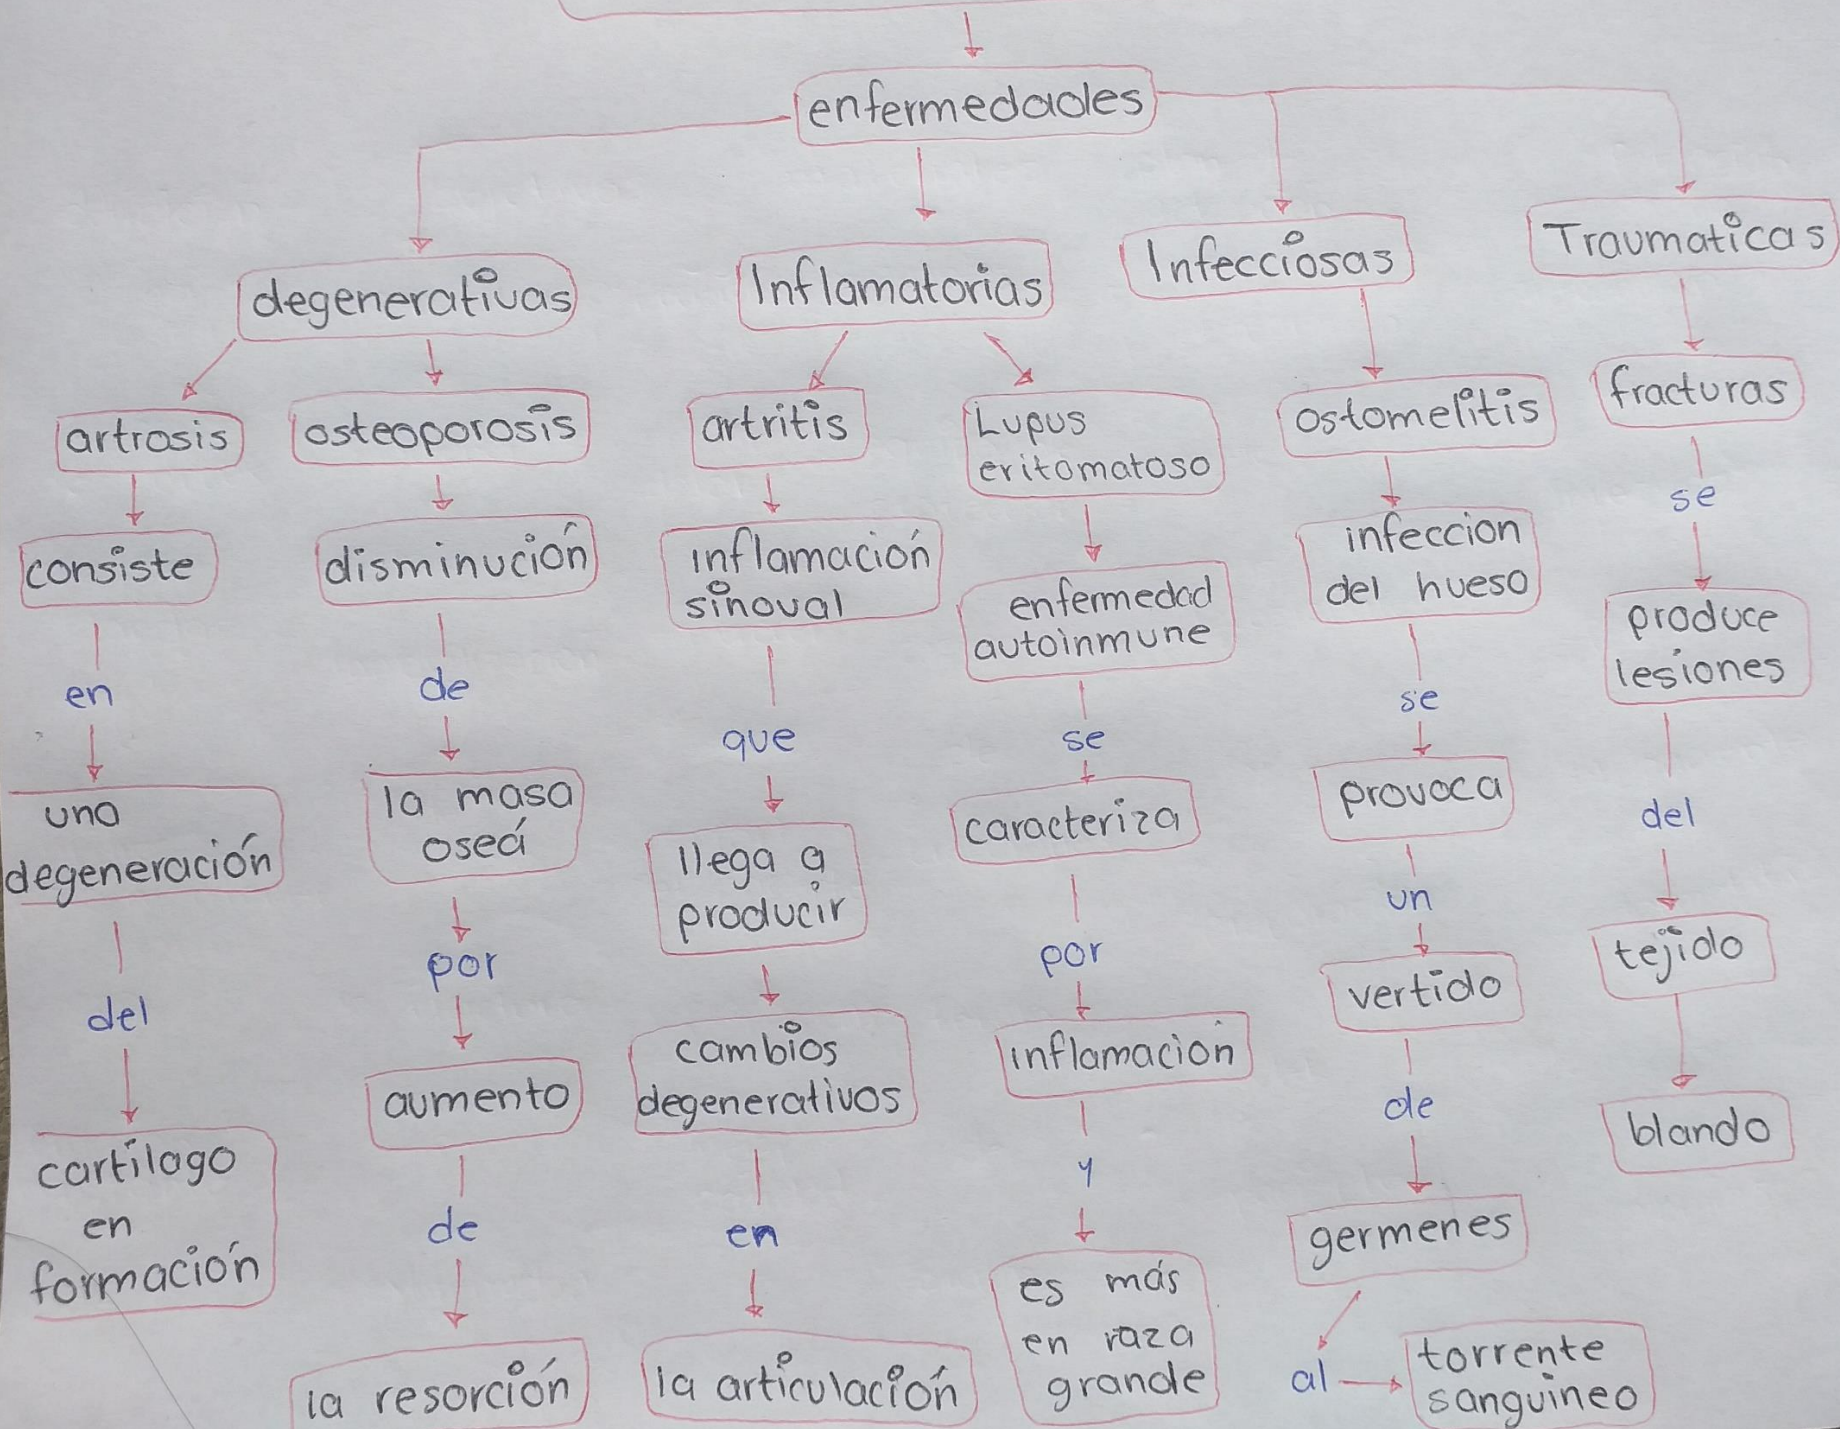 enfermedades
degenerativas
Inflamatorias
Infecciosas
Traumaticas
artrosis
consiste
en
una
degeneración
del
cartilago
en
formación
osteoporosis
disminución
de
la masa
oseá
por
aumento
de
la resorción
artritis
inflamación
sinoval
que
llega a
producir
cambios
degenerativos
en
la articulación
Lupus
eritomatoso
enfermedad
autoinmune
se
caracteriza
por
inflamación
y
es más
en raza
grande
ostomelitis
infeccion
del hueso
se
provoca
un
vertido
de
germenes
al
torrente
sanguineo
fracturas
se
produce
lesiones
del
tejido
blando